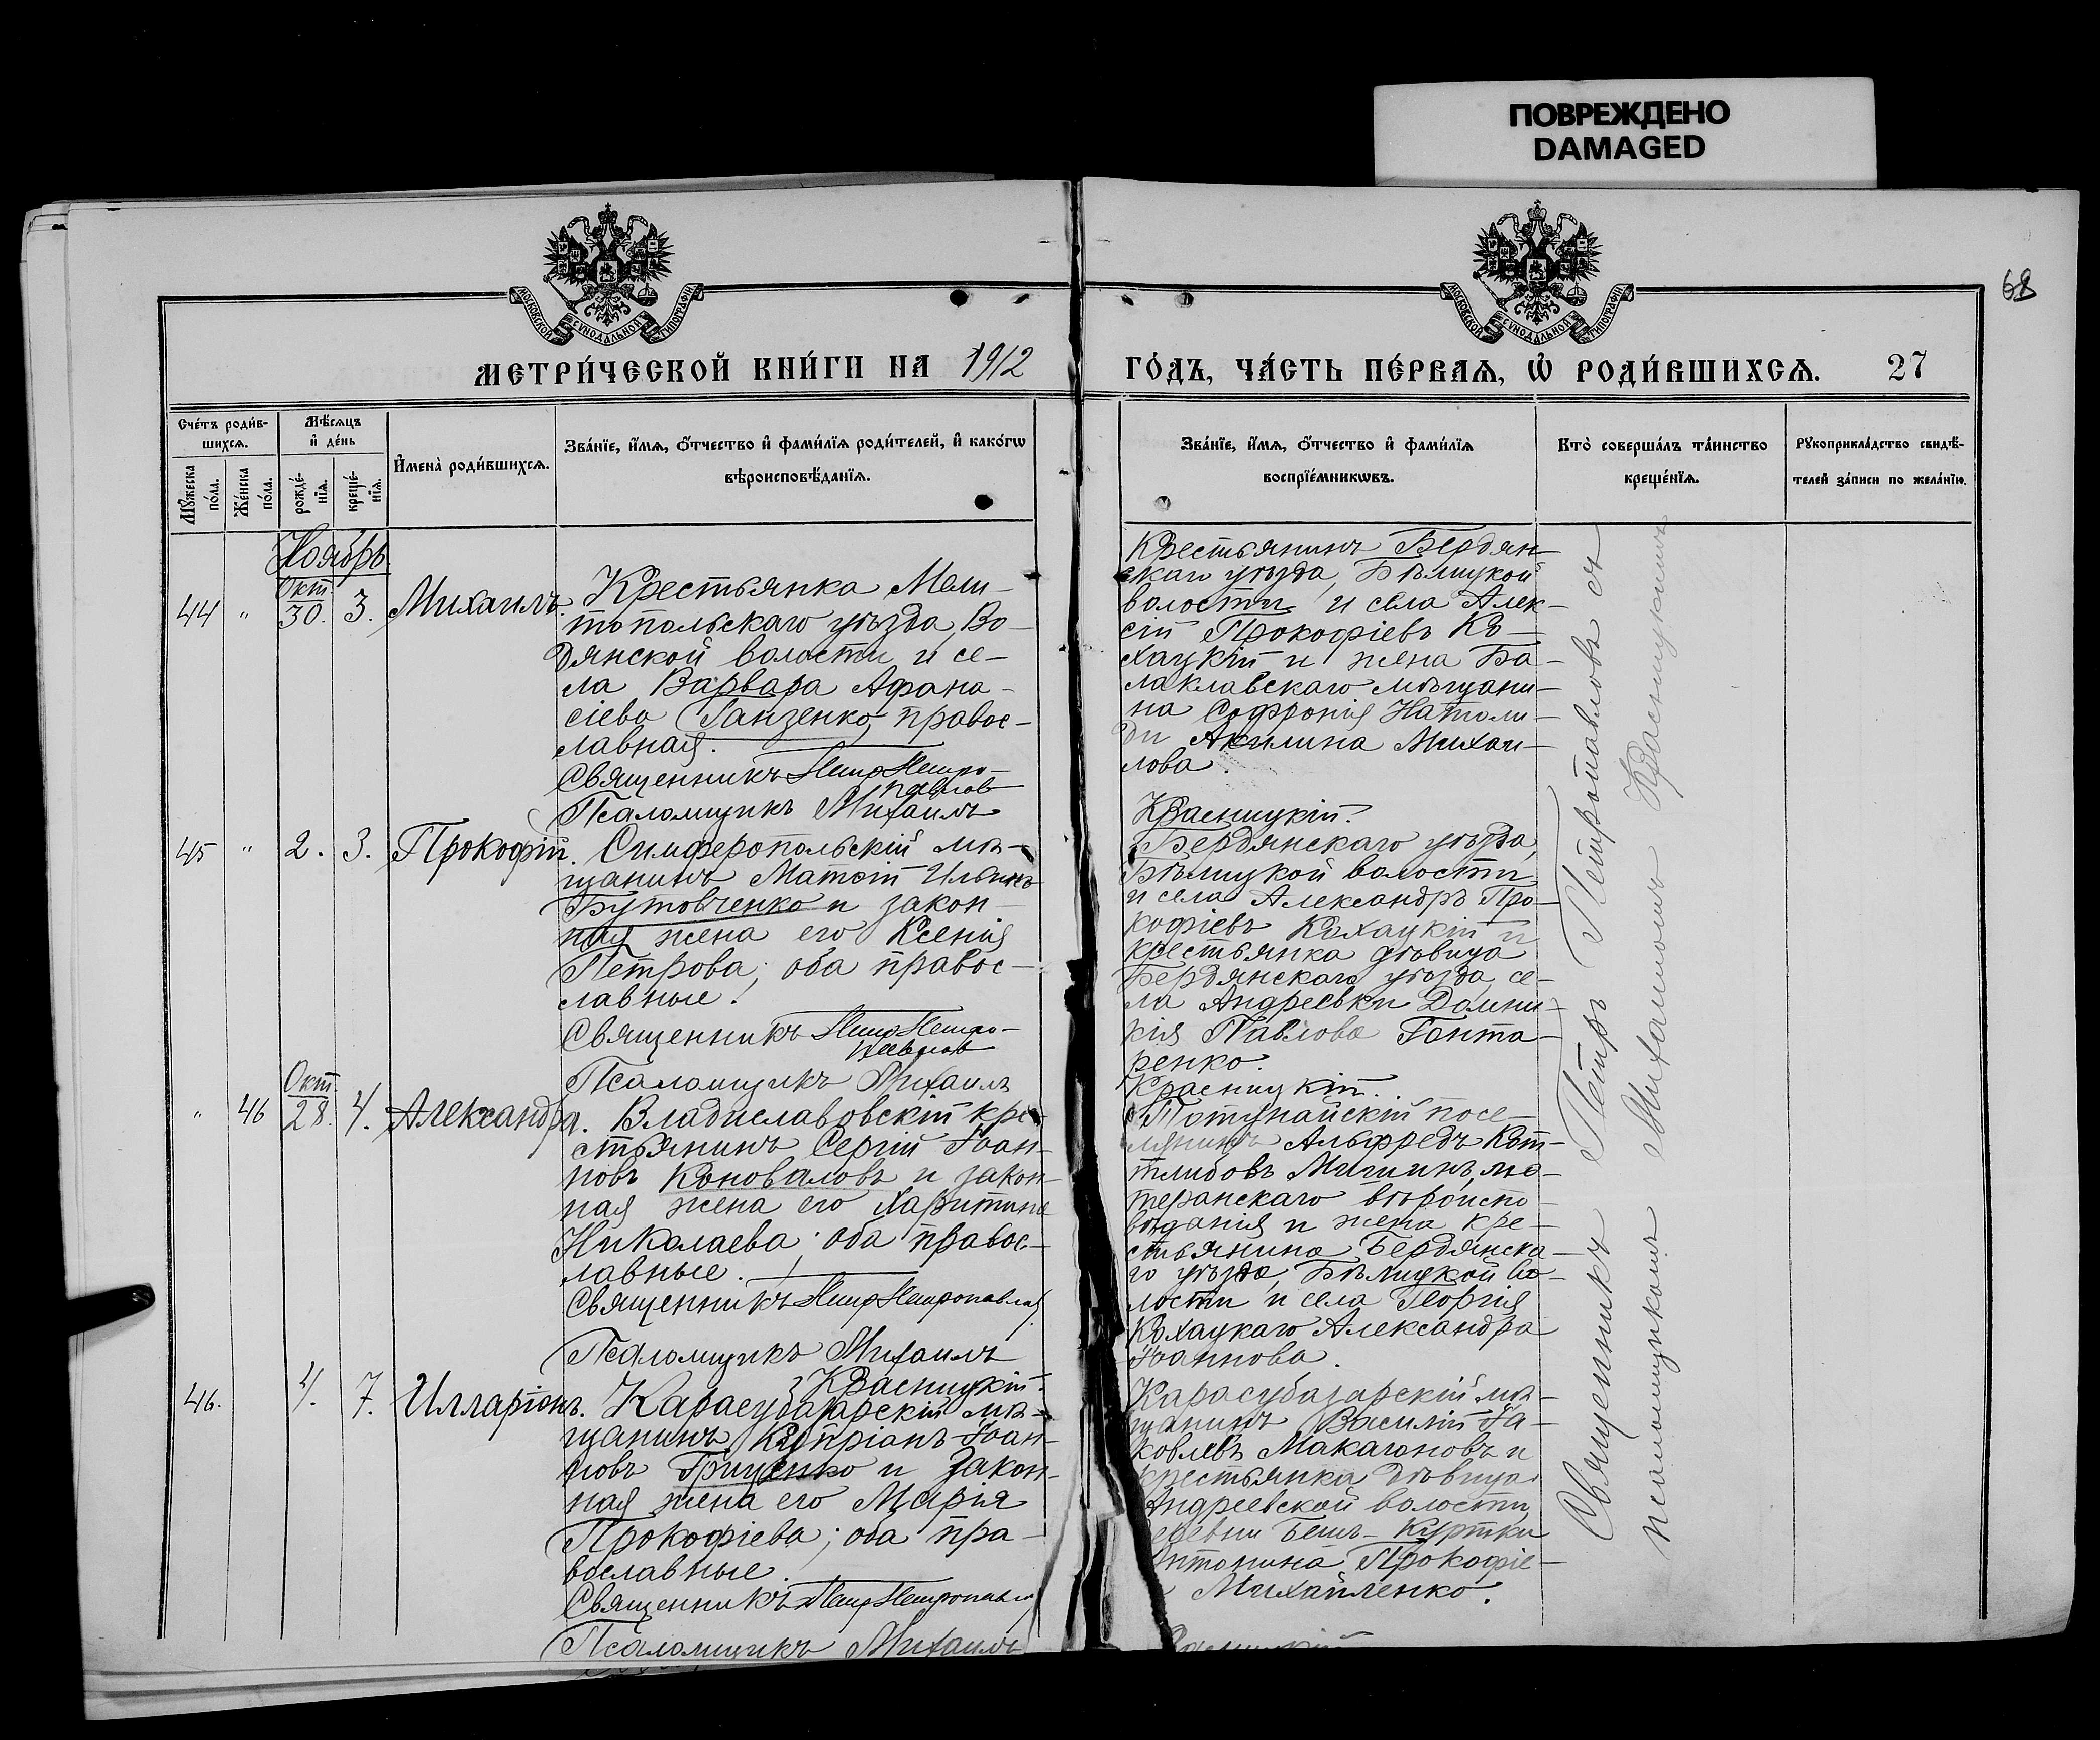 ПОВРЕЖДЕНО
DAMAGED
68
МОСКОВСКОЙ СѴНОДАЛЬНОЙ ТИПОГРАФІИ
МОСКОВСКОЙ СѴНОДАЛЬНОЙ ТИПОГРАФІИ
МЕТРИ́ЧЕСКОЙ КНИ́ГИ НА 1912
ГО́ДЪ, ЧА́СТЬ ПЕ́РВАѦ, Ѽ РОДИ́ВШИХСѦ. 27
Сче́тъ роди́в-
шихсѧ.
Мꙋ́жеска
по́ла.
Же́нска
по́ла.
Мѣ́сѧцъ
и҆ де́нь
рожде́-
нїѧ.
креще́-
нїѧ.
И҆мена̀ роди́вшихсѧ.
Зва́нїе, и҆́мѧ, ѻ҆́тчество и҆ фами́лїѧ роди́телей, и҆ како́гѡ
вѣроисповѣ́данїѧ.
Зва́нїе, и҆́мѧ, ѻ҆́тчество и҆ фами́лїѧ
воспрїе́мникѡвъ.
Кто̀ соверша́лъ та́инство
креще́нїѧ.
Рꙋкоприкла́дство свидѣ́-
телей за́писи по жела́нїю.
Ноябрь
44 " Окт. 30. 3. Михаилъ.
Крестьянка Мели-
топольскаго уѣзда, Во-
дянской волости и се-
ла Варвара Афана-
сіева Ганзенко, правос-
лавная.
Священникъ Петр Петро-
павлов
Псаломщикъ Михаилъ
Крестьянинъ Бердян-
скаго уѣзда, Бѣлицкой
волости и села Алек-
сій Прокофіевъ Ко-
хацкій и жена Ба-
лаклавскаго мѣщани-
на Софронія Натоли-
ди Акилина Михаи-
лова.
Красницкій.
45 " 2. 3. Прокофій.
Симферопольскій мѣ-
щанинъ Матѳій Ильинъ
Бутовченко и закон-
ная жена его Ксенія
Петрова; оба правос-
лавные.
Священникъ Петр Петро-
павлов
Псаломщикъ Михаилъ
Бердянскаго уѣзда,
Бѣлицкой волости
и села Александръ Про-
кофіевъ Кохацкій и
крестьянка дѣвица
Бердянскаго уѣзда, се-
ла Андреевки Домни-
кія Павлова Гонта-
ренко.
Красницкій.
" 46 Окт. 28. 4. Александра.
Владиславовскій кре-
стьянинъ Сергій Іоан-
новъ Коноваловъ и закон-
ная жена его Харитина
Николаева; оба правос-
лавные.
Священникъ Петр Петропавлов
Псаломщикъ Михаилъ
Красницкій.
посе-
лянинъ Альфредъ Кот-
тлибовъ лю-
теранскаго вѣроиспо-
вѣданія и жена кре-
стьянина Бердянска-
го уѣзда, Бѣлицкой во-
лости и села Георгія
Кохацкаго Александра
Іоаннова.
46. 4. 7. Илларіонъ.
Карасубазарскій мѣ-
щанинъ Кипріанъ Іоан-
новъ Гриценко и закон-
ная жена его Марія
Прокофіева; оба пра-
вославные.
Священникъ Петр Петропавлов
Псаломщикъ Михаилъ
Карасубазарскій мѣ-
щанинъ Василій Іа-
ковлевъ Макагоновъ и
крестьянка дѣвица
Андреевской волости,
Беш-Куртки
Антонина Прокофіе-
Михайленко.
Священникъ Петръ Петропавловъ съ
псаломщикомъ Михаиломъ Красницкимъ